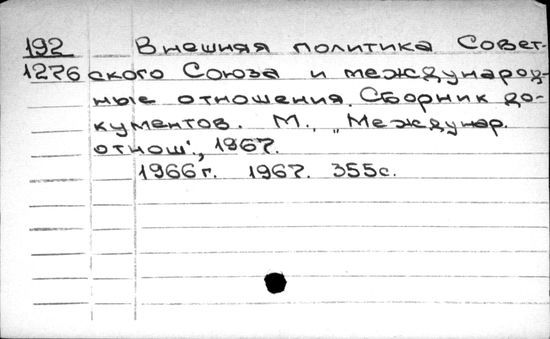 192 Внешняя политика Совет-
1276 ского Союза и международ-
ные отношения. Сборник до-
кументов. М., „Междунар.
отнош.", 1967.
1966 г. 1967. 355с.